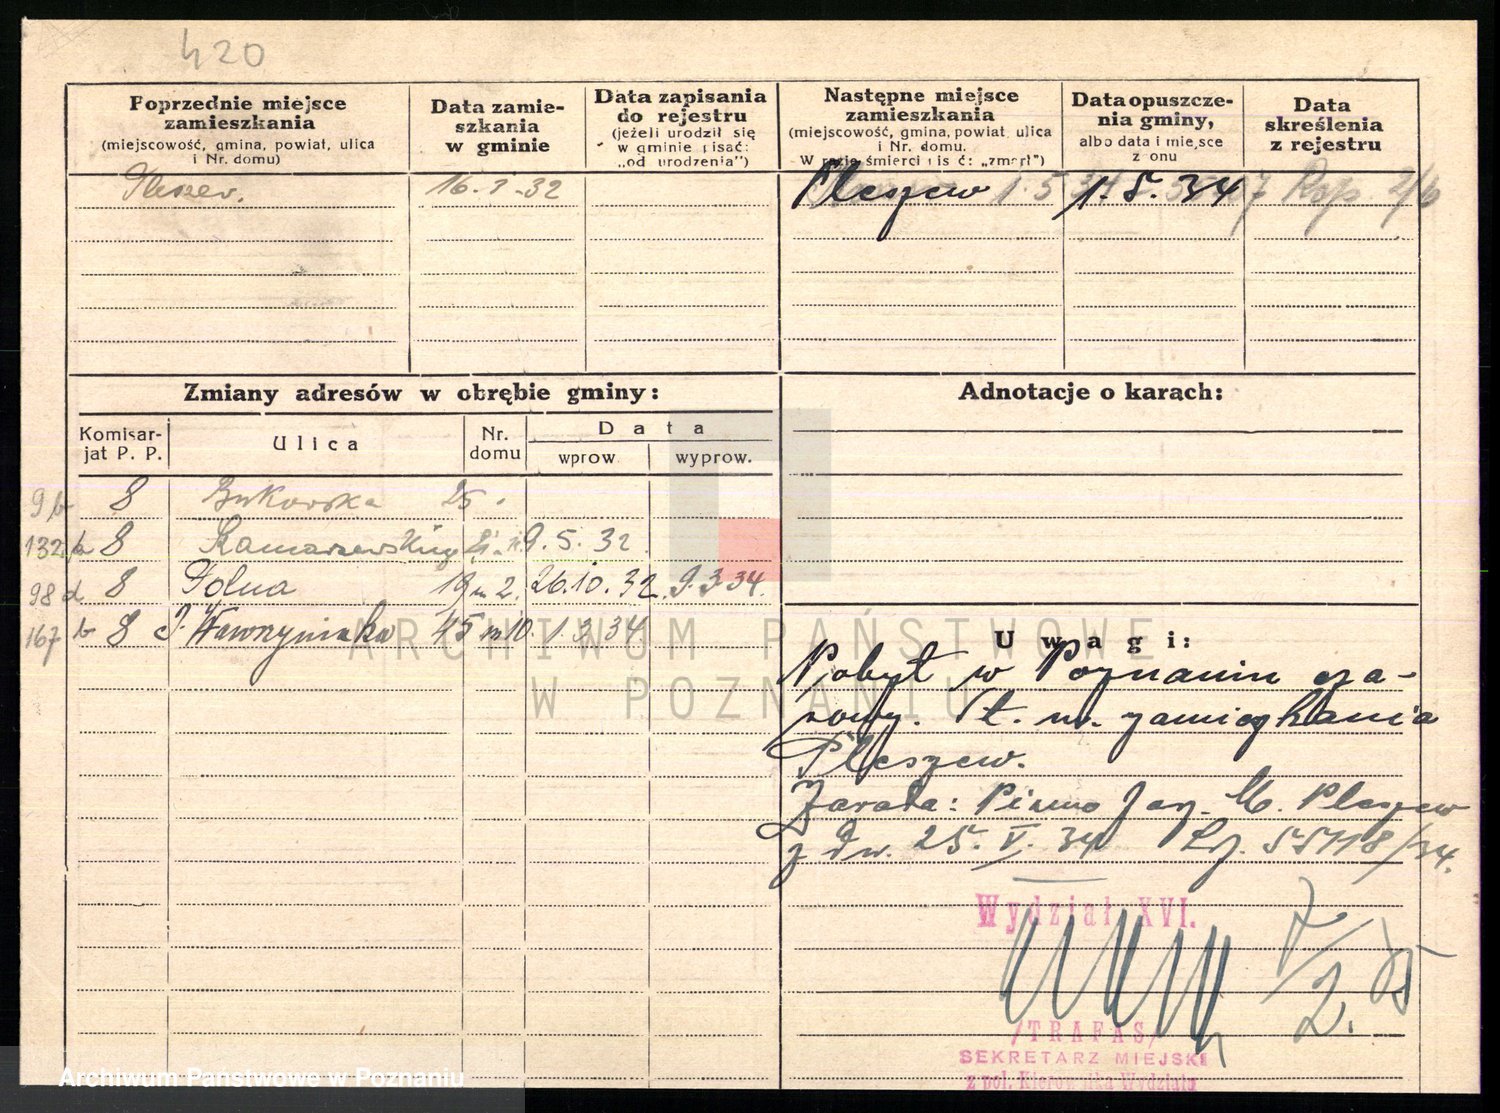 420
Poprzednie miejsce
zamieszkania
(miejscowość, gmina, powiat, ulica
i Nr. domu)
Data zamie-
szkania
w gminie
Data zapisania
do rejestru
(jeżeli urodził się
w gminie pisać:
„od urodzenia")
Następne miejsce
zamieszkania
(miejscowość, gmina, powiat, ulica
i Nr. domu.
W razie śmierci pisać: „zmarł")
Data opuszcze-
nia gminy,
albo data i miejsce
zgonu
Data
skreślenia
z rejestru
Pleszew. 16.1.32 Pleszew 1.5.34
Zmiany adresów w obrębie gminy:
Komisar-
jat P. P.
Ulica
Nr.
domu
Data
wprow.
wyprow.
9 b 8 Bukowska 25
132 b 8 9.5.32
98 d 8 Polna 19 m 2. 26.10.32. 9.3.34.
167 b 8 J. Wawrzyniaka 45 m 10. 1.3.34.
Adnotacje o karach:
Uwagi:
Pobyt w Poznaniu cza-
sowy. St. m. zamieszkania
Pleszew.
Pismo Zarz. M. Pleszew
z dn. 25. V. 34 Lz. 55118/34.
Wydział XVI.
7/2. 35
/TRAFAS/
SEKRETARZ MIEJSKI
z pol. Kierownika Wydziału
ARCHIWUM PAŃSTWOWE
W POZNANIU
Archiwum Państwowe w Poznaniu